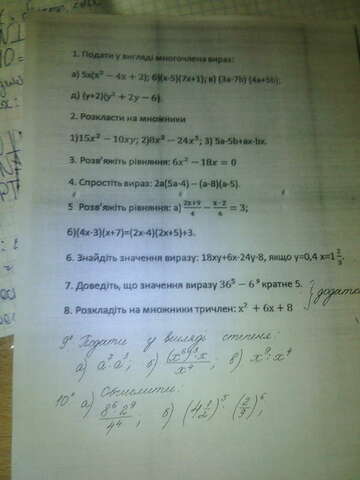 1. Подати у вигляді многочлена вираз:
а) 5х(x² − 4x + 2); б)(х-5)(7х+1); в) (3а-7b) (4а+5b);
д) (у+2)(y² + 2y − 6).
2. Розкласти на множники
1)15x² − 10xy; 2)8x² − 24x⁵; 3) 5а-5b+ах-bх.
3. Розв'яжіть рівняння: 6x² − 18x = 0
4. Спростіть вираз: 2а(5а-4) – (а-8)(а-5).
5 Розв'яжіть рівняння: а) (2x+9)/4 − (x−2)/6 = 3;
б)(4х-3)(х+7)=(2х-4)(2х+5)+3.
6. Знайдіть значення виразу: 18ху+6х-24у-8, якщо у=0,4 х=1 2/3.
7. Доведіть, що значення виразу 36⁵ − 6⁹ кратне 5.
8. Розкладіть на множники тричлен: x² + 6x + 8
} додатк
9° Подати у вигляді степеня:
а) a² · a³; б) (x⁶)³ · x / x⁴; в) x⁹ : x⁴
10° а) Обчислити:
8⁶ · 2⁹ / 4⁴; б) (4 1/2)⁵ · (2/9)⁶;